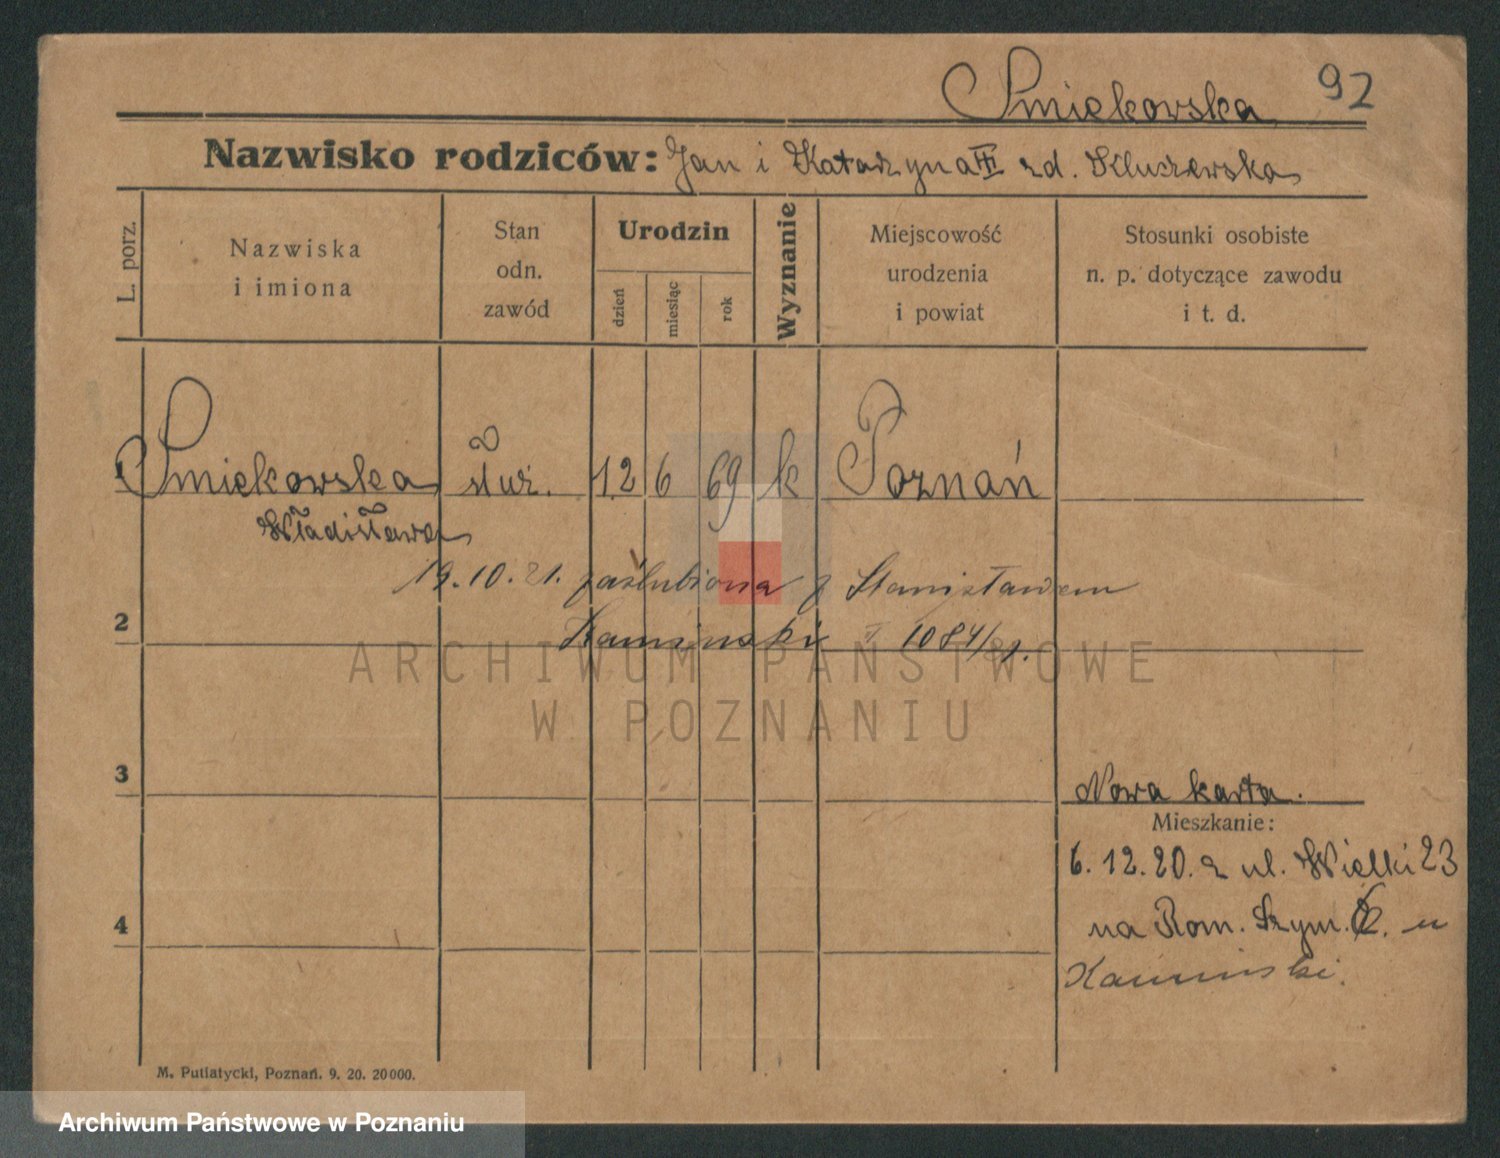 Smiekowska 92
Nazwisko rodziców: Jan i Katarzyna zd. Kluczewska
L. porz.
Nazwiska
i imiona
Stan
odn.
zawód
Urodzin
dzień
miesiąc
rok
Wyznanie
Miejscowość
urodzenia
i powiat
Stosunki osobiste
n. p. dotyczące zawodu
i t. d.
1 Smiekowska służ. 12 6 69 k Poznań
Władisława
19.10.21. zaślubiona z Stanisławem
2 Kaminski 1084/21.
ARCHIWUM PAŃSTWOWE
W POZNANIU
3
Nowa karta.
Mieszkanie:
6.12.20. z ul. Wielki 23
4 na Rom. Szym. u
Kaminski.
M. Putiatycki, Poznań. 9. 20. 20000.
Archiwum Państwowe w Poznaniu